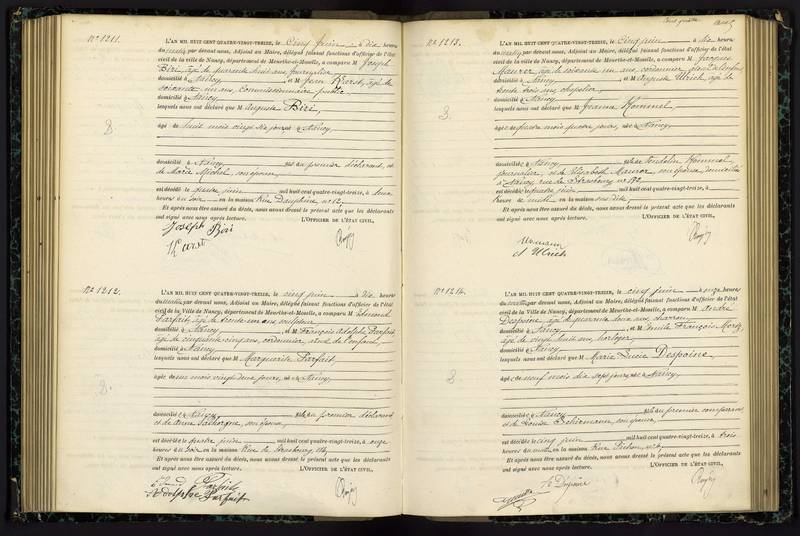 Nº 1211.
L'AN MIL HUIT CENT QUATRE-VINGT-TREIZE, le cinq juin à dix heures
du matin, par devant nous, Adjoint au Maire, délégué faisant fonctions d'officier de l'état
civil de la Ville de Nancy, département de Meurthe-et-Moselle, a comparu M Joseph
Biri, âgé de quarante huit ans, journalier
domicilié à Nancy, et M Jean Karst, âgé de
soixante un ans, commissionnaire public
domicilié à Nancy
lesquels nous ont déclaré que M Auguste Biri,
âgé de huit mois vingt six jours, né à Nancy,
domicilié à Nancy fils du premier déclarant, et
de Marie Michel, son épouse,
est décédé le quatre juin mil huit cent quatre-vingt-treize, à
heures du soir en la maison Rue Dauphine nº 12,
Et après nous être assuré du décès, nous avons dressé le présent acte que les déclarants
ont signé avec nous après lecture. L'OFFICIER DE L'ÉTAT CIVIL,
Joseph Biri
Karst
Nº 1212.
L'AN MIL HUIT CENT QUATRE-VINGT-TREIZE, le cinq juin à dix heures
du matin, par devant nous, Adjoint au Maire, délégué faisant fonctions d'officier de l'état
civil de la Ville de Nancy, département de Meurthe-et-Moselle, a comparu M Edmond
Parfait, âgé de trente un ans, sculpteur
domicilié à Nancy, et M François Adolphe Parfait,
âgé de cinquante cinq ans, cordonnier, aïeul de l'enfant,
domicilié à Nancy
lesquels nous ont déclaré que M Marguerite Parfait
âgée de un mois vingt deux jours, née à Nancy,
domiciliée à Nancy fille du premier déclarant
et de Anne son épouse,
est décédée le quatre juin mil huit cent quatre-vingt-treize, à onze
heures du soir, en la maison Rue de Strasbourg,
Et après nous être assuré du décès, nous avons dressé le présent acte que les déclarants
ont signé avec nous après lecture. L'OFFICIER DE L'ÉTAT CIVIL,
Parfait
Adolphe Parfait
Nº 1213.
L'AN MIL HUIT CENT QUATRE-VINGT-TREIZE, le cinq juin à dix heures
du matin, par devant nous, Adjoint au Maire, délégué faisant fonctions d'officier de l'état
civil de la Ville de Nancy, département de Meurthe-et-Moselle, a comparu M Jacques
Maurer, âgé de soixante un ans, cordonnier,
domicilié à Nancy, et M Auguste Ulrich, âgé de
trente trois ans,
domicilié à Nancy
lesquels nous ont déclaré que M Jeanne Hommel,
âgée de quatre mois quatre jours, née à Nancy,
domiciliée à Nancy fille de Hommel,
journalier, et de Elisabeth Maurer, son épouse, domiciliés
à Nancy, rue de Strasbourg nº 192
est décédée le quatre juin mil huit cent quatre-vingt-treize, à
heures de en la maison
Et après nous être assuré du décès, nous avons dressé le présent acte que les déclarants
ont signé avec nous après lecture. L'OFFICIER DE L'ÉTAT CIVIL,
A Ulrich
Nº 1214.
L'AN MIL HUIT CENT QUATRE-VINGT-TREIZE, le cinq juin à onze heures
du matin, par devant nous, Adjoint au Maire, délégué faisant fonctions d'officier de l'état
civil de la Ville de Nancy, département de Meurthe-et-Moselle, a comparu M André
Despoine, âgé de quarante trois ans, charron
domicilié à Nancy, et M Emile François Mertz,
âgé de vingt huit ans, horloger,
domicilié à Nancy
lesquels nous ont déclaré que M Marie Lucie Despoine,
âgée de neuf mois dix sept jours, née à Nancy,
domiciliée à Nancy fille du premier comparant
et de Louise Schirmann, son épouse,
est décédée le cinq juin mil huit cent quatre-vingt-treize, à trois
heures du matin en la maison Rue
Et après nous être assuré du décès, nous avons dressé le présent acte que les déclarants
ont signé avec nous après lecture. L'OFFICIER DE L'ÉTAT CIVIL,